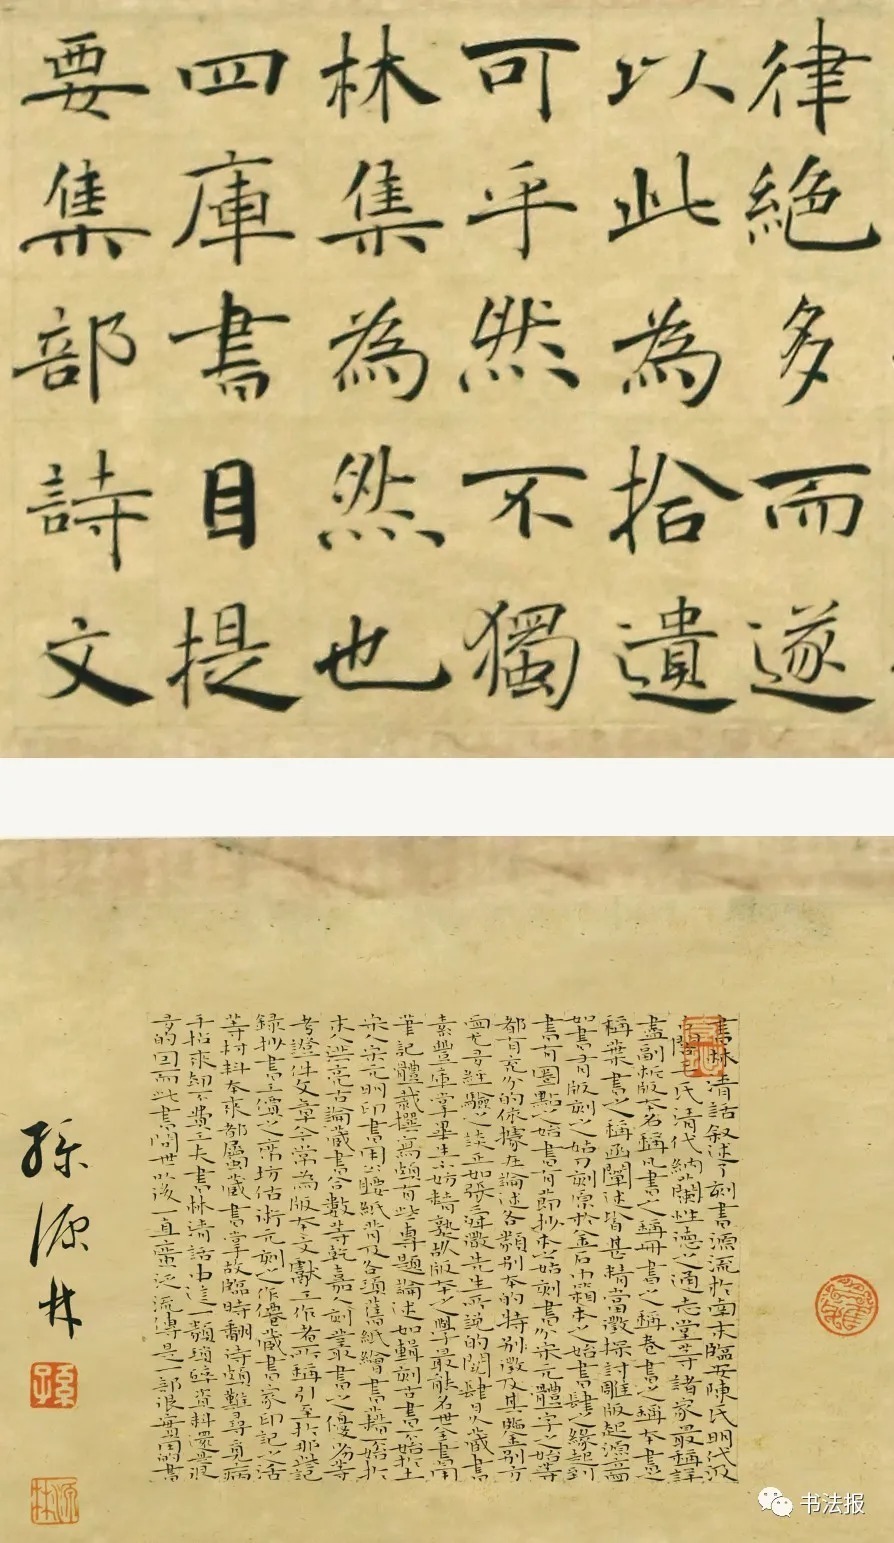 律絕多而遂
以此為拾遺
可乎然不獨
林集為然也
四庫書目提
要集部詩文
書林清話叙述了刻書源流於南宋臨安陳氏明代汲
古閣毛氏清代納蘭性德之通志堂等諸家最稱詳
盡副版本名稱凡書之稱冊書之稱卷書之稱本書之
稱葉書之稱函闡述皆甚精當徵探討雕版起源而
如書有版刻之始刀刻原於金石巾箱本之始書肆之緣起到
書有圈點之始書有節抄本之始刻書分宋元體字之始等
都有充分的依據在論述各類別本的特別徵及其鑒別方
面尤多經驗之談正如張舜徽先生所說的閱肆日久藏書
素豐畢生精熟故版本之學最能名世全書用
筆記體裁撰寫頗有些專題論述如輯刻古書不始於王
宋人宋元明印書用公牘紙背及各項舊紙繪書籍不始於
宋人洪亮吉論藏書合數等乾嘉人刻叢書之優劣等
考證性文章今常為版本文獻工作者所稱引至於那些記
録抄書工價之廉坊估宋元刻之作偽藏書家印記之語
等材料本來都屬藏書掌故臨時翻頗難尋覓
手拈來卻不費工夫書林清話中這一類瑣碎資料還是很
多的因而此書問世以後一直廣泛流傳是一部很有用的書
孫源林
孫
源林
书法报